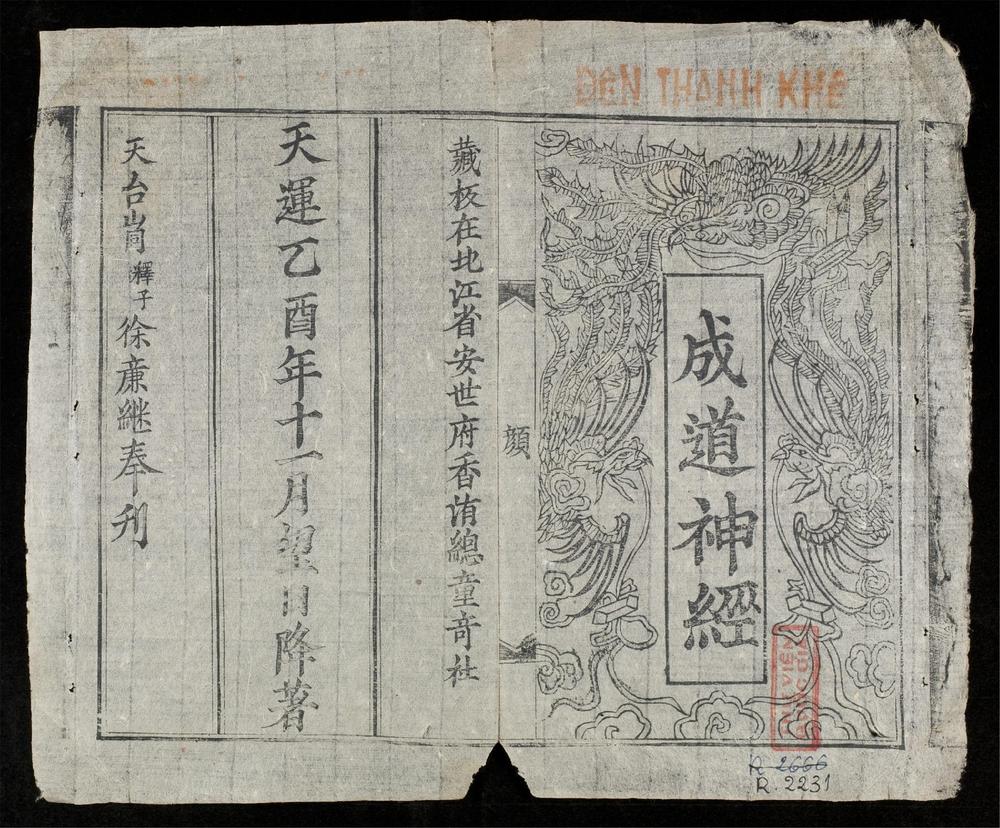 ĐỀN THANH KHÊ
成道神經
顔
藏板在北江省安世府香洧總童竒社
天運乙酉年十一月望日降著
天台崗釋子徐㢘継奉刊
THƯ VIỆN
R. 2666
R. 2231